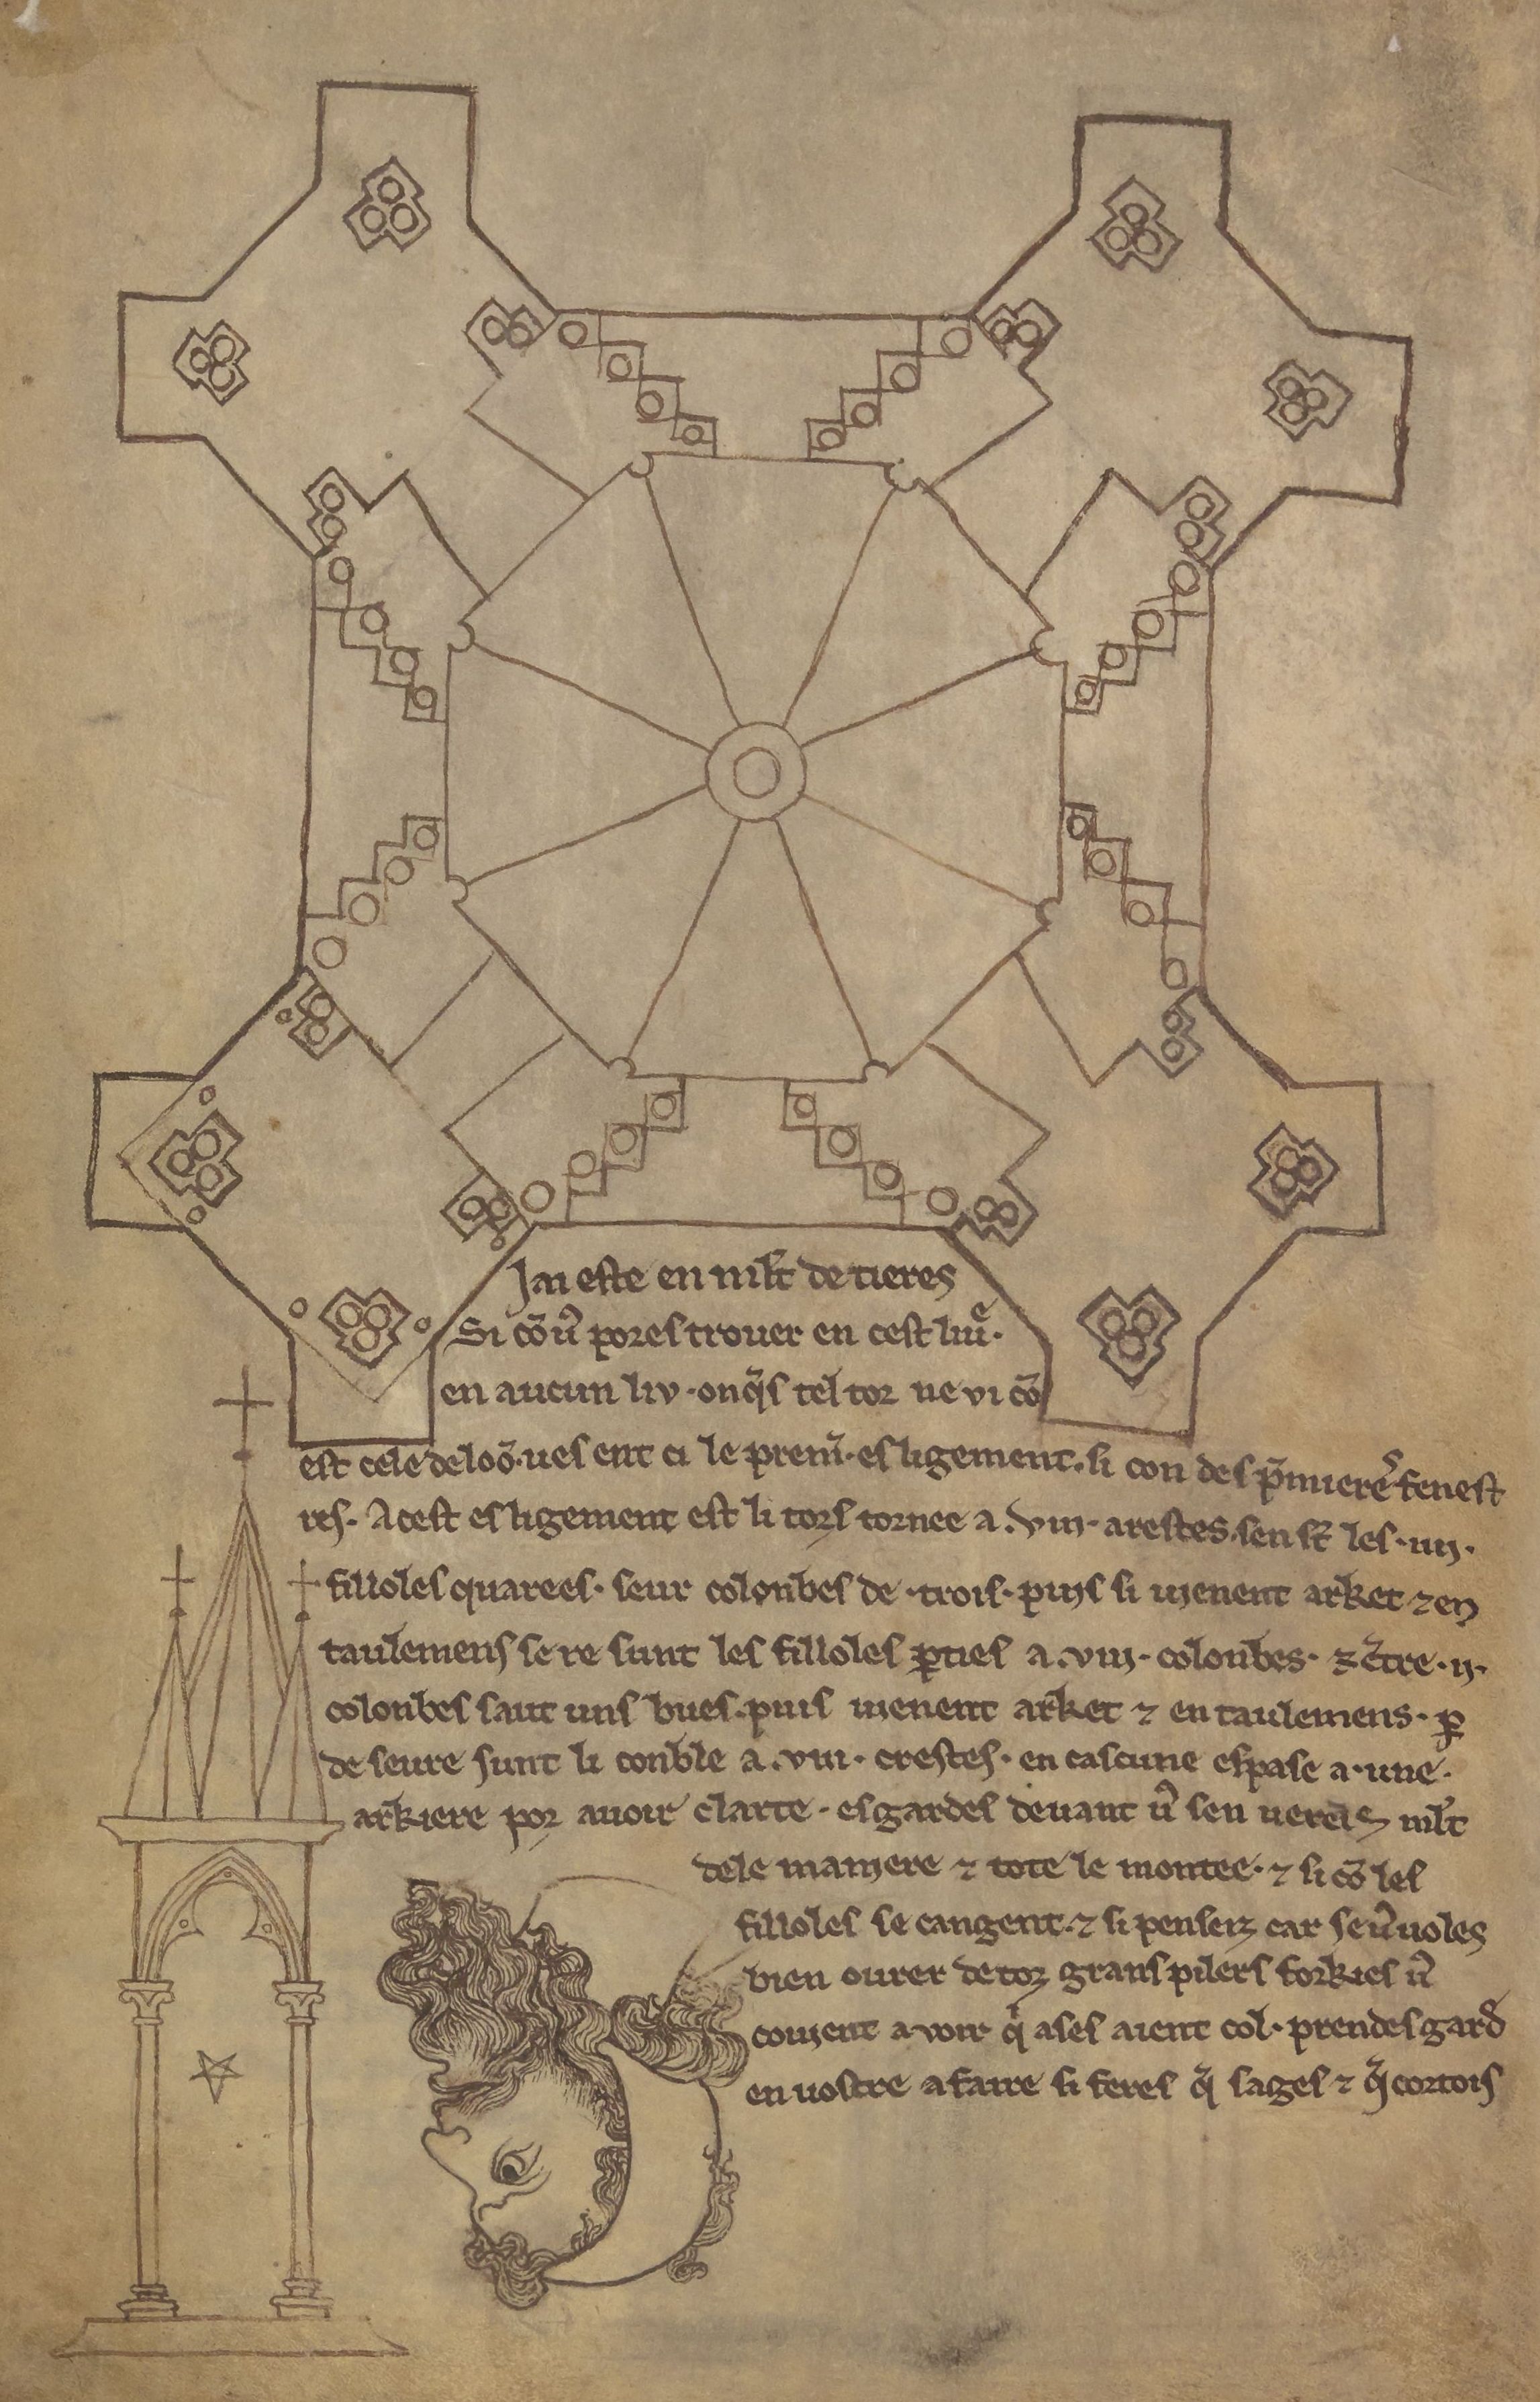 Jai este en ml't de tieres
Si cō v͛ pores trover en cest livᵉ.
en aucun liv · onq̄s tel tor ne vi cō
est cele de loō. ves ent ci le prem̄. esligement. li con des p̄mieres fenest
res. A cest esligement est li tors tornee a .viii. arestes. sen st̄ les .iiii.
filloles quarees. seur colonbes de .trois. puis si vienent arket ⁊ en
taulemens se re sunt les filloles ꝑties a .viii. colonbes. ⁊ ētre .ii.
colonbes saut uns bues. puis vienent arket ⁊ entaulemens. ꝑ
deseure sunt li conble a .viii. crestes. en cascune espase a .une.
arkiere por avoir clarte. esgardes devant v͛ sen vereis ml't
dele maniere ⁊ tote le montee. ⁊ si cō les
filloles se cangent. ⁊ si penseiz car se v͛ voles
bien ovrer de toz grans pilers forkies v͛
covient avoir q̄ ases aient col. prendes gard
en vostre afaire si feres q̄ sages ⁊ q̄ cortois